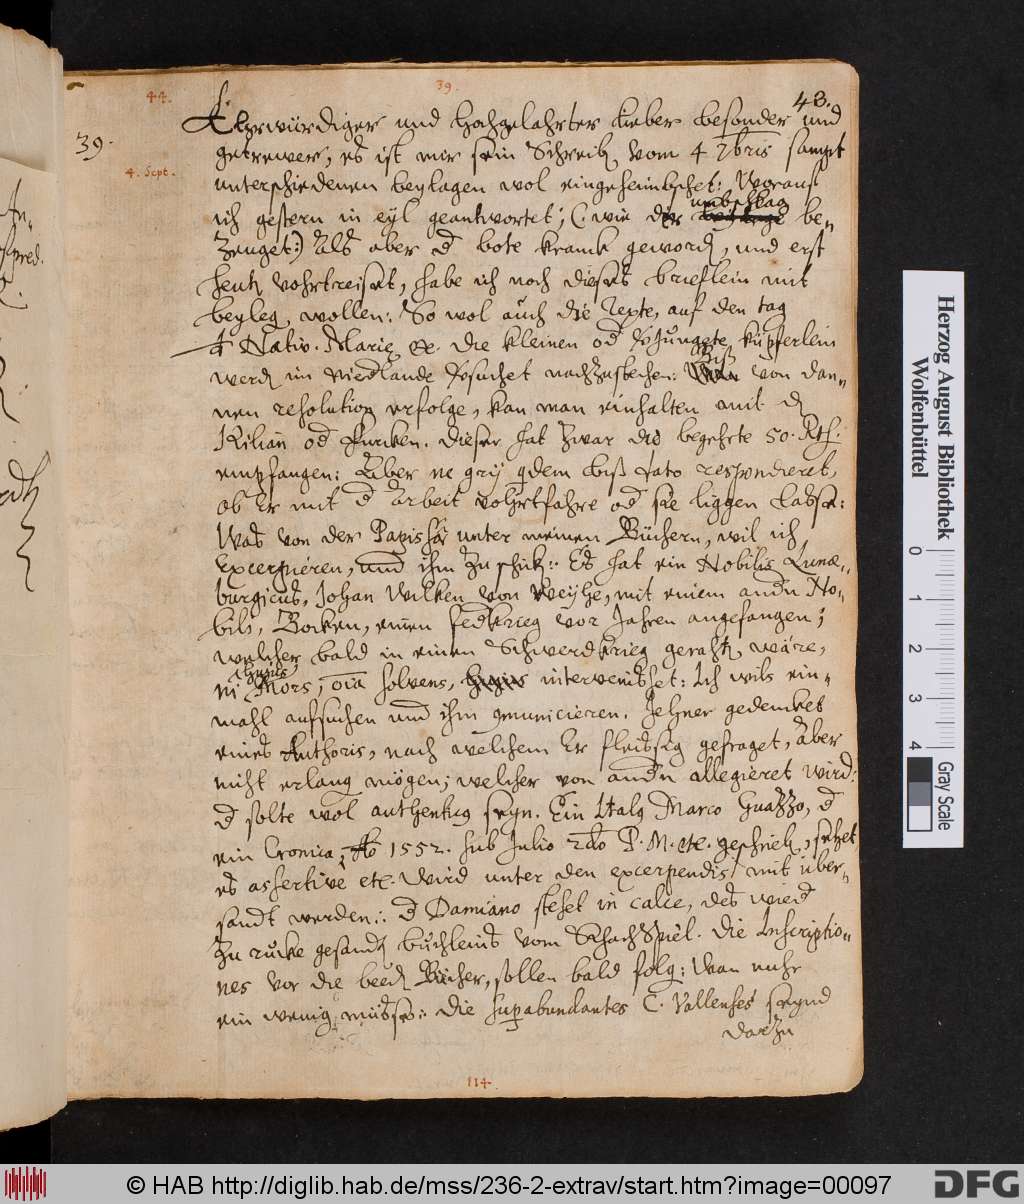 44.
39.
43.
39.
4. Sept.
Ehrwürdiger und Hochgelahrter lieber besonder und
getrewer, es ist mir sein Schreib. vom 4 7bris sampt
unterschiedenen beylagen wol eingeheimbschet: Worauf
ich gestern in eyl geantwortet; (: wie der umbschlag be-
zeuget:) Als aber d bote kranck geword, und erst
heut vohrtreiset, habe ich noch dieses brieflein mit
beyleg. wollen: So wol auch die Texte, auf den tag
Nativ. Mariæ &c. die kleinen od kupferlein
werd im Niedlande gesuchet nachzustechen: Biß von dan-
nen resolution erfolge, kan man einhalten mit d
Kilian od Fürcken. dieser hat zwar die begehrte 50. Rth.
empfangen: Aber ne gry qdem biß dato respondieret,
ob Er mit d Arbeit vohrtfahre od sie liggen laße:
Was von der Papissa unter meinen Büchern, wil ich
excerpieren, und ihm zu schick.: Es hat ein Nobilis Lunæ-
burgicus, Johan Wilken von Weyhe, mit einem andn No-
bili, Bocken, einen fedkrieg vor Jahren angefangen;
welcher bald in einen Schwerdkrieg gerahtn wäre,
ni Mors, oia solvens, hujus intervenisset: Ich wils ein-
mahl aufsuchen und ihm cmunicieren. Jehner gedencket
eines Authoris, nach welchem Er fleissig gefraget, Aber
nicht erlang mögen; welcher von andn allegieret wird:
d solte wol authentiq seyn. Ein Italg Marco Guazzo, d
ein Cronica, Ao 1552. sub Julio 2do P. M. etc. geschrieb, setzet
es assertive etc. Wird unter den excerpendis mit über-
sandt werden.: d Damiano stehet in calce, des wied
zu rucke gesandn büchleins vom SchachSpiel. die Inscriptio-
nes vor die beed Bücher, sollen bald folg: Wan nuhr
ein wenig müsse: die supabundantes C. Vallenses seynd
darzu
114.
Herzog August Bibliothek
Wolfenbüttel
0 1 2 3 4
Gray Scale
© HAB http://diglib.hab.de/mss/236-2-extrav/start.htm?image=00097
DFG